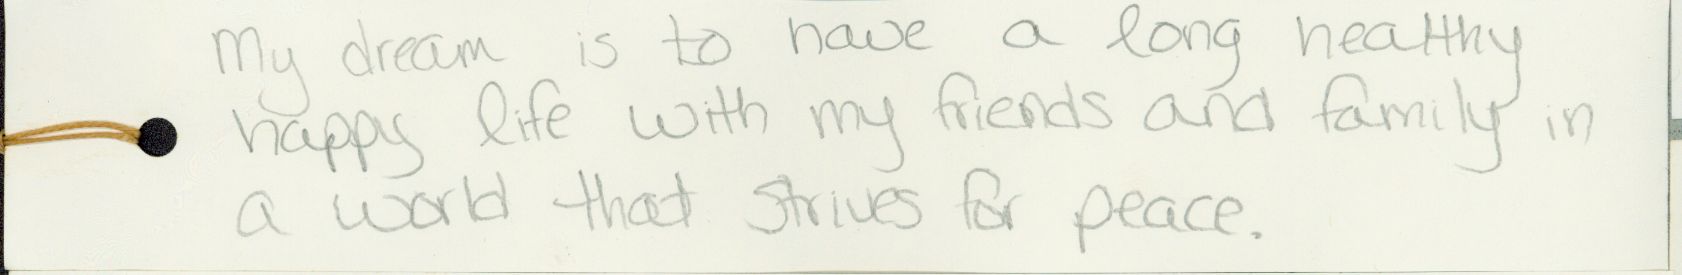 My dream is to have a long healthy
happy life with my friends and family in
a world that strives for peace.